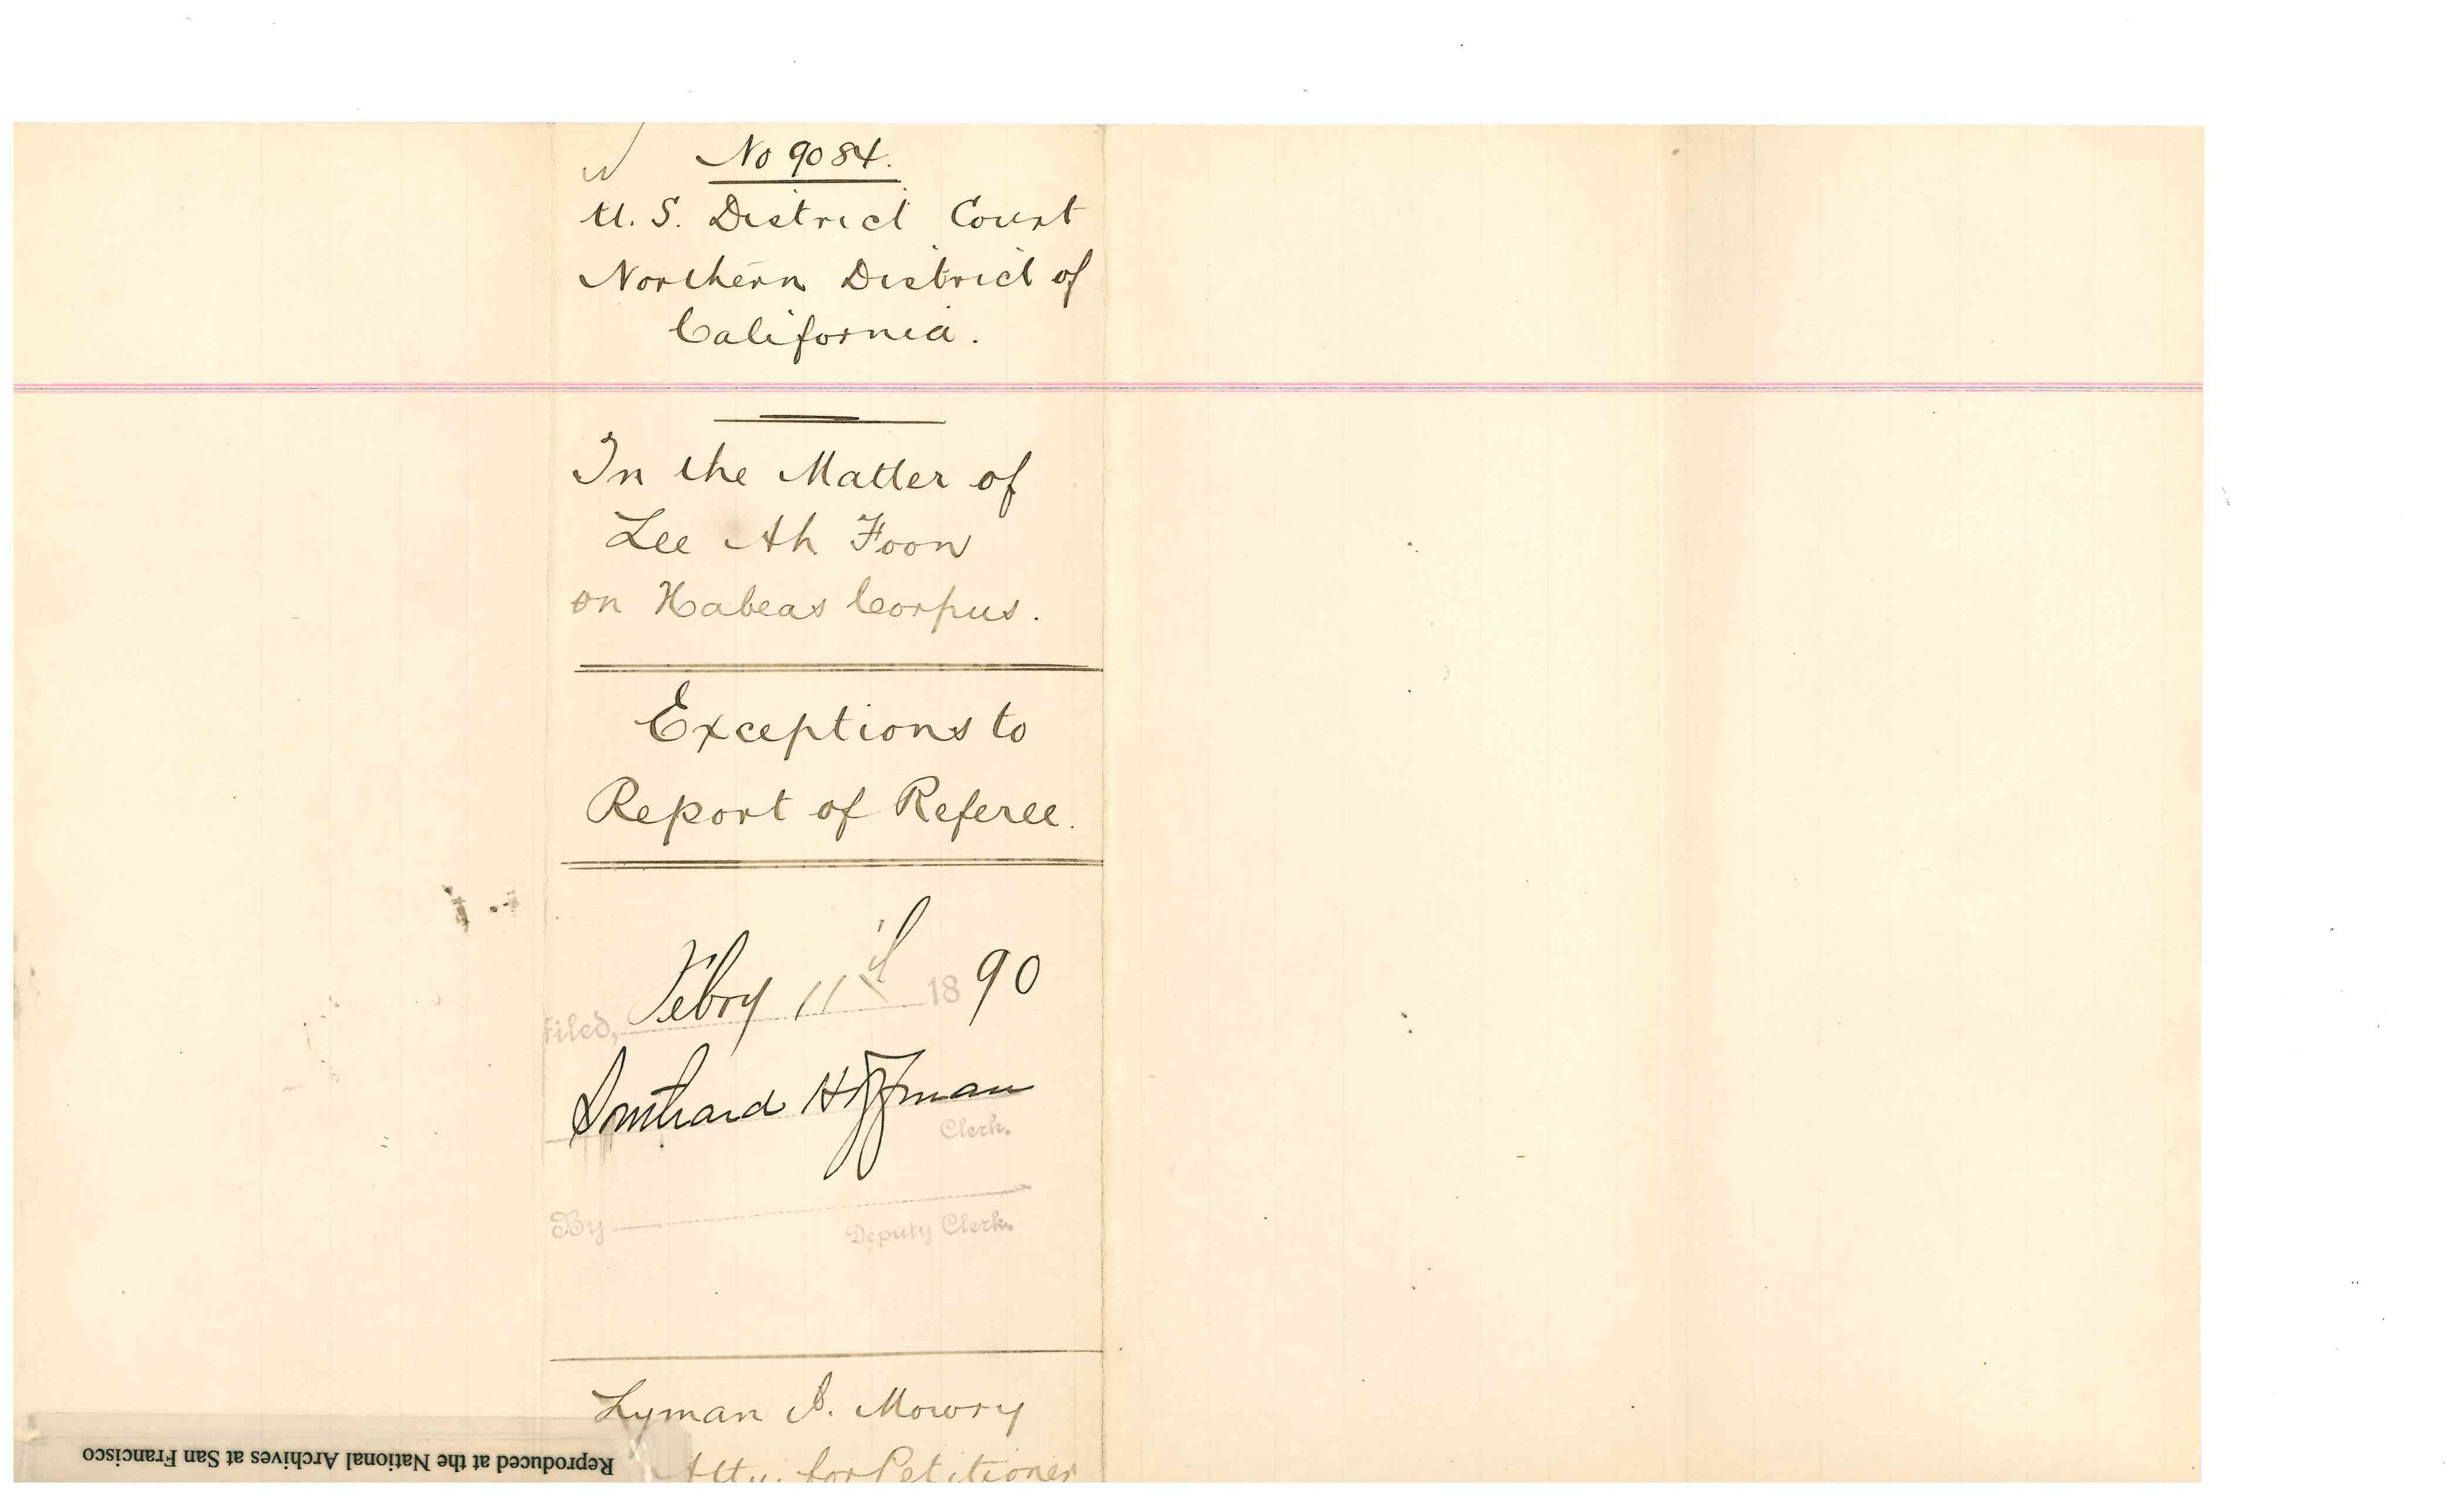 No 9084.
U. S. District Court
Northern District of
California.
In the Matter of
Lee Ah Foon
on Habeas Corpus.
Exceptions to
Report of Referee.
Filed, Febry 11th 1890
Southard Hoffman
Clerk.
By
Deputy Clerk.
Lyman I. Mowry
Atty. for Petitioner
Reproduced at the National Archives at San Francisco